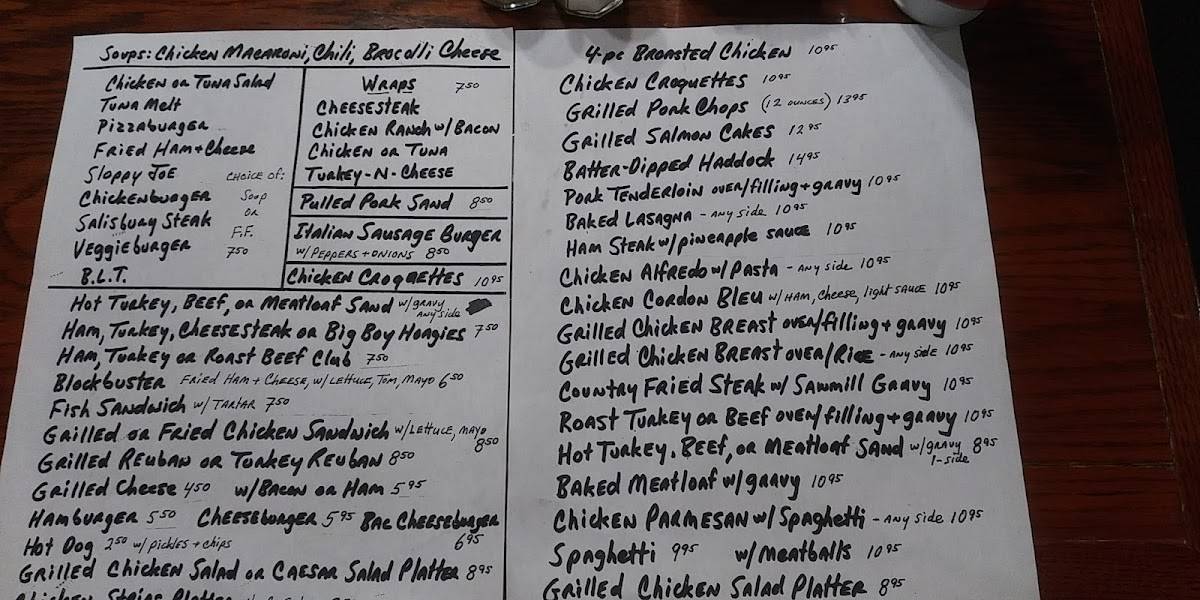 Soups: Chicken Macaroni, Chili, Brocolli Cheese
Chicken or Tuna Salad
Tuna Melt
Pizzaburger
Fried Ham + Cheese
Sloppy Joe
Chickenburger
Salisbury Steak
Veggieburger
B.L.T.
Choice of:
Soup
or
F.F.
7.50
Wraps 7.50
Cheesesteak
Chicken Ranch w/Bacon
Chicken or Tuna
Turkey-N-Cheese
Pulled Pork Sand 8.50
Italian Sausage Burger
w/Peppers + Onions 8.50
Chicken Croquettes 10.95
Hot Turkey, Beef, or Meatloaf Sand w/gravy
any side
Ham, Turkey, Cheesesteak or Big Boy Hoagies 7.50
Ham, Turkey or Roast Beef Club 7.50
Blockbuster Fried Ham + Cheese, w/Lettuce, Tom, Mayo 6.50
Fish Sandwich w/Tartar 7.50
Grilled or Fried Chicken Sandwich w/Lettuce, Mayo
8.50
Grilled Reuban or Turkey Reuban 8.50
Grilled Cheese 4.50 w/Bacon or Ham 5.95
Hamburger 5.50 Cheeseburger 5.95 Bac Cheeseburger
6.95
Hot Dog 2.50 w/pickles + chips
Grilled Chicken Salad or Caesar Salad Platter 8.95
Chicken Strips Platter
4-pc Broasted Chicken 10.95
Chicken Croquettes 10.95
Grilled Pork Chops (12 ounces) 13.95
Grilled Salmon Cakes 12.95
Batter-Dipped Haddock 14.95
Pork Tenderloin over/filling + gravy 10.95
Baked Lasagna - any side 10.95
Ham Steak w/pineapple sauce 10.95
Chicken Alfredo w/Pasta - any side 10.95
Chicken Cordon Bleu w/Ham, Cheese, light sauce 10.95
Grilled Chicken Breast over/filling + gravy 10.95
Grilled Chicken Breast over/Rice - any side 10.95
Country Fried Steak w/Sawmill Gravy 10.95
Roast Turkey or Beef over/filling + gravy 10.95
Hot Turkey, Beef, or Meatloaf Sand w/gravy 8.95
1-side
Baked Meatloaf w/gravy 10.95
Chicken Parmesan w/Spaghetti - any side 10.95
Spaghetti 9.95 w/meatballs 10.95
Grilled Chicken Salad Platter 8.95